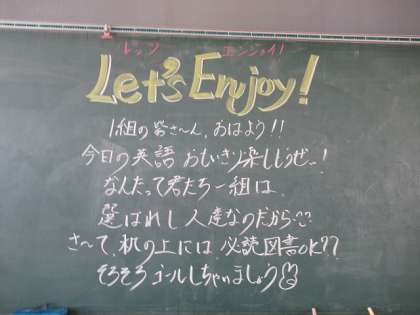 レッツ エンジョイ!
Let's Enjoy!
1組の皆さ~ん、おはよう!!
今日の英語 おもいきり楽しもうぜー!
なんたって君たち一組は、
選ばれし人達なのだから…
さ~て、机の上には、必読図書OK??
そろそろゴールしちゃいましょう